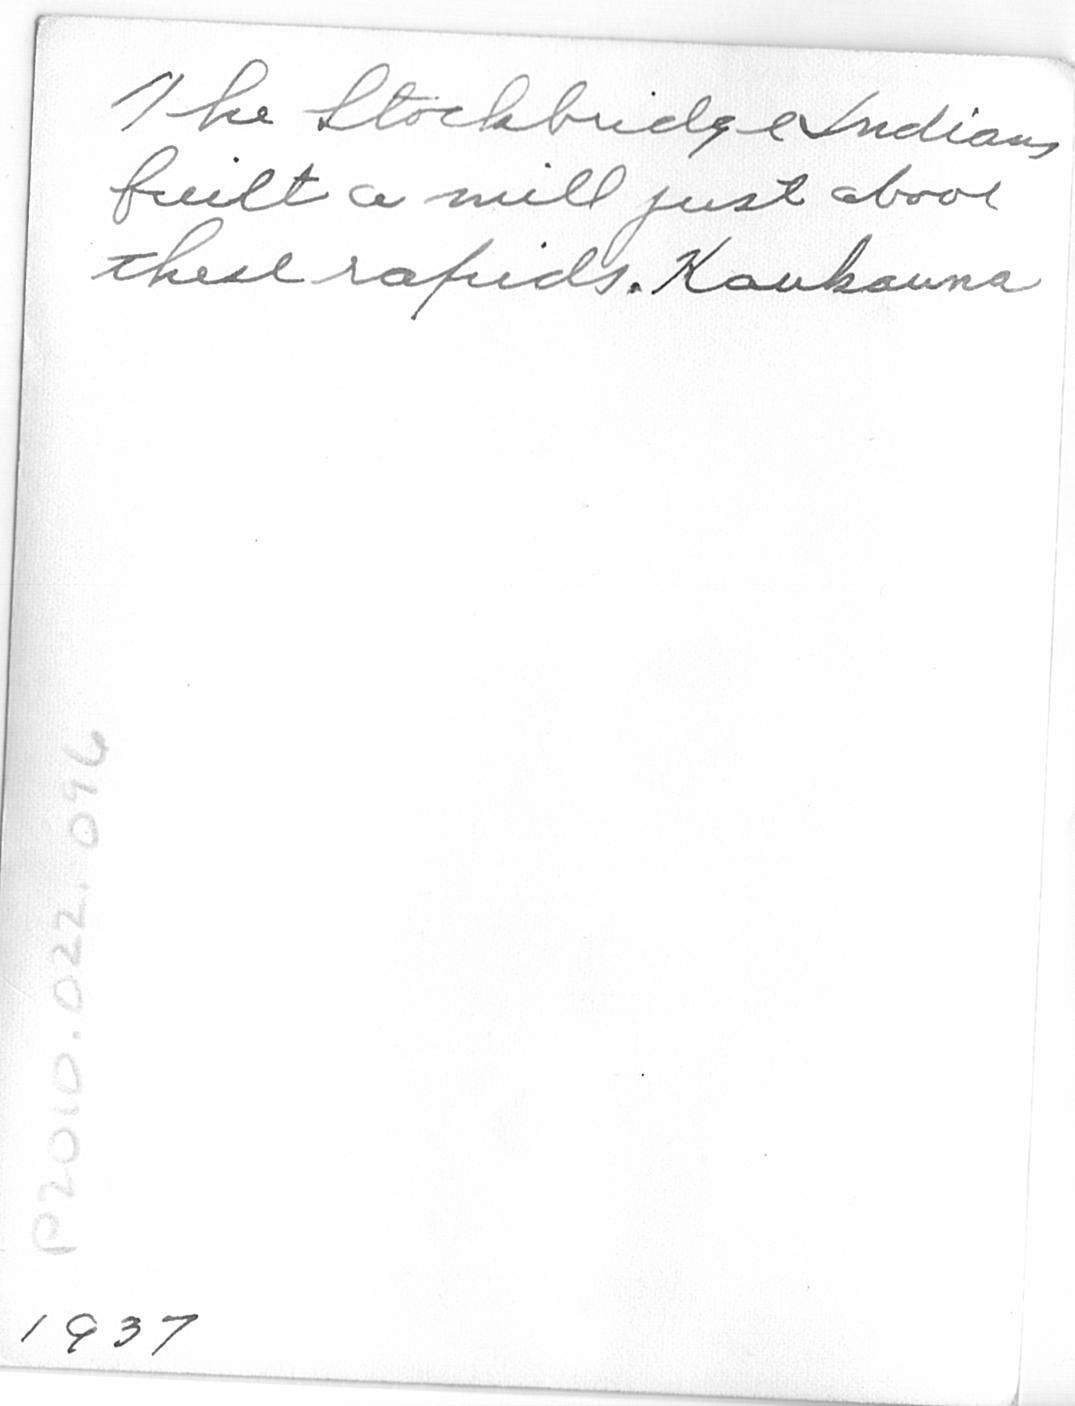 The Stockbridge Indians
built a mill just above
these rapids. Kaukauna
P2010.022.096
1937